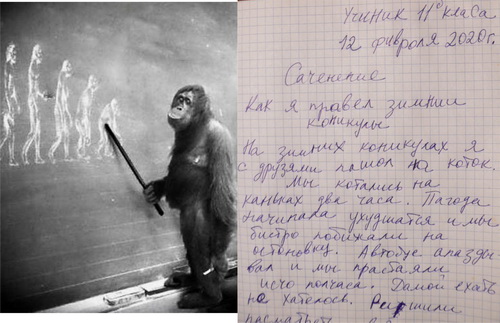 Ученик 11 "б" класа
12 февроля 2020г.
Саченение
Как я правел зимнии
коникулы
На зимних коникулах я
с друзями пашол на коток.
Мы котались на
каньках два часа. Пагода
начинала ухудшатся и мы
быстро побижали на
остоновку. Автобус апазды
вал и мы прастаяли
исчо полчаса. Дамой ехать
не хателось. Ришили